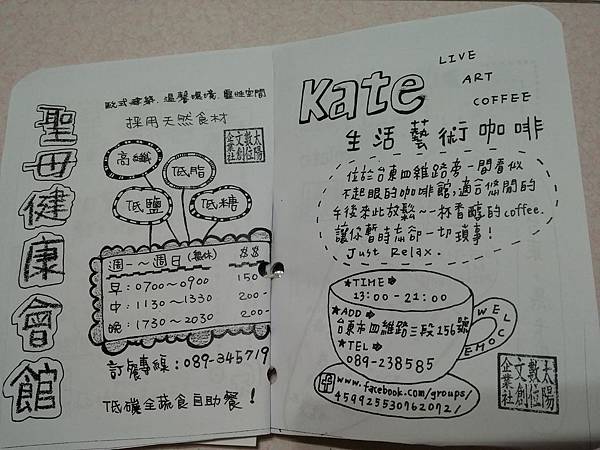 聖母健康會館
歐式建築．溫馨環境．靈性空間
採用天然食材
太陽
數位
文創
企業社
高纖
低脂
低鹽
低糖
週一～週日(無休)
早：0700～0900 150
中：1130～1330 200-
晚：1730～2030 200-
訂餐專線：089-345719
低碳全蔬食自助餐！
Kate
LIVE
ART
COFFEE
生活藝術咖啡
位於台東四維路旁一間看似
不起眼的咖啡館,適合悠閒的
午後來此放鬆～一杯香醇的coffee.
讓你暫時忘卻一切瑣事!
Just Relax.
★TIME
13:00-21:00
★ADD
台東市四維路三段156號
★TEL
089-238585
WELCOME
www.facebook.com/groups/
459925530762072/
太陽
數位
文創
企業社